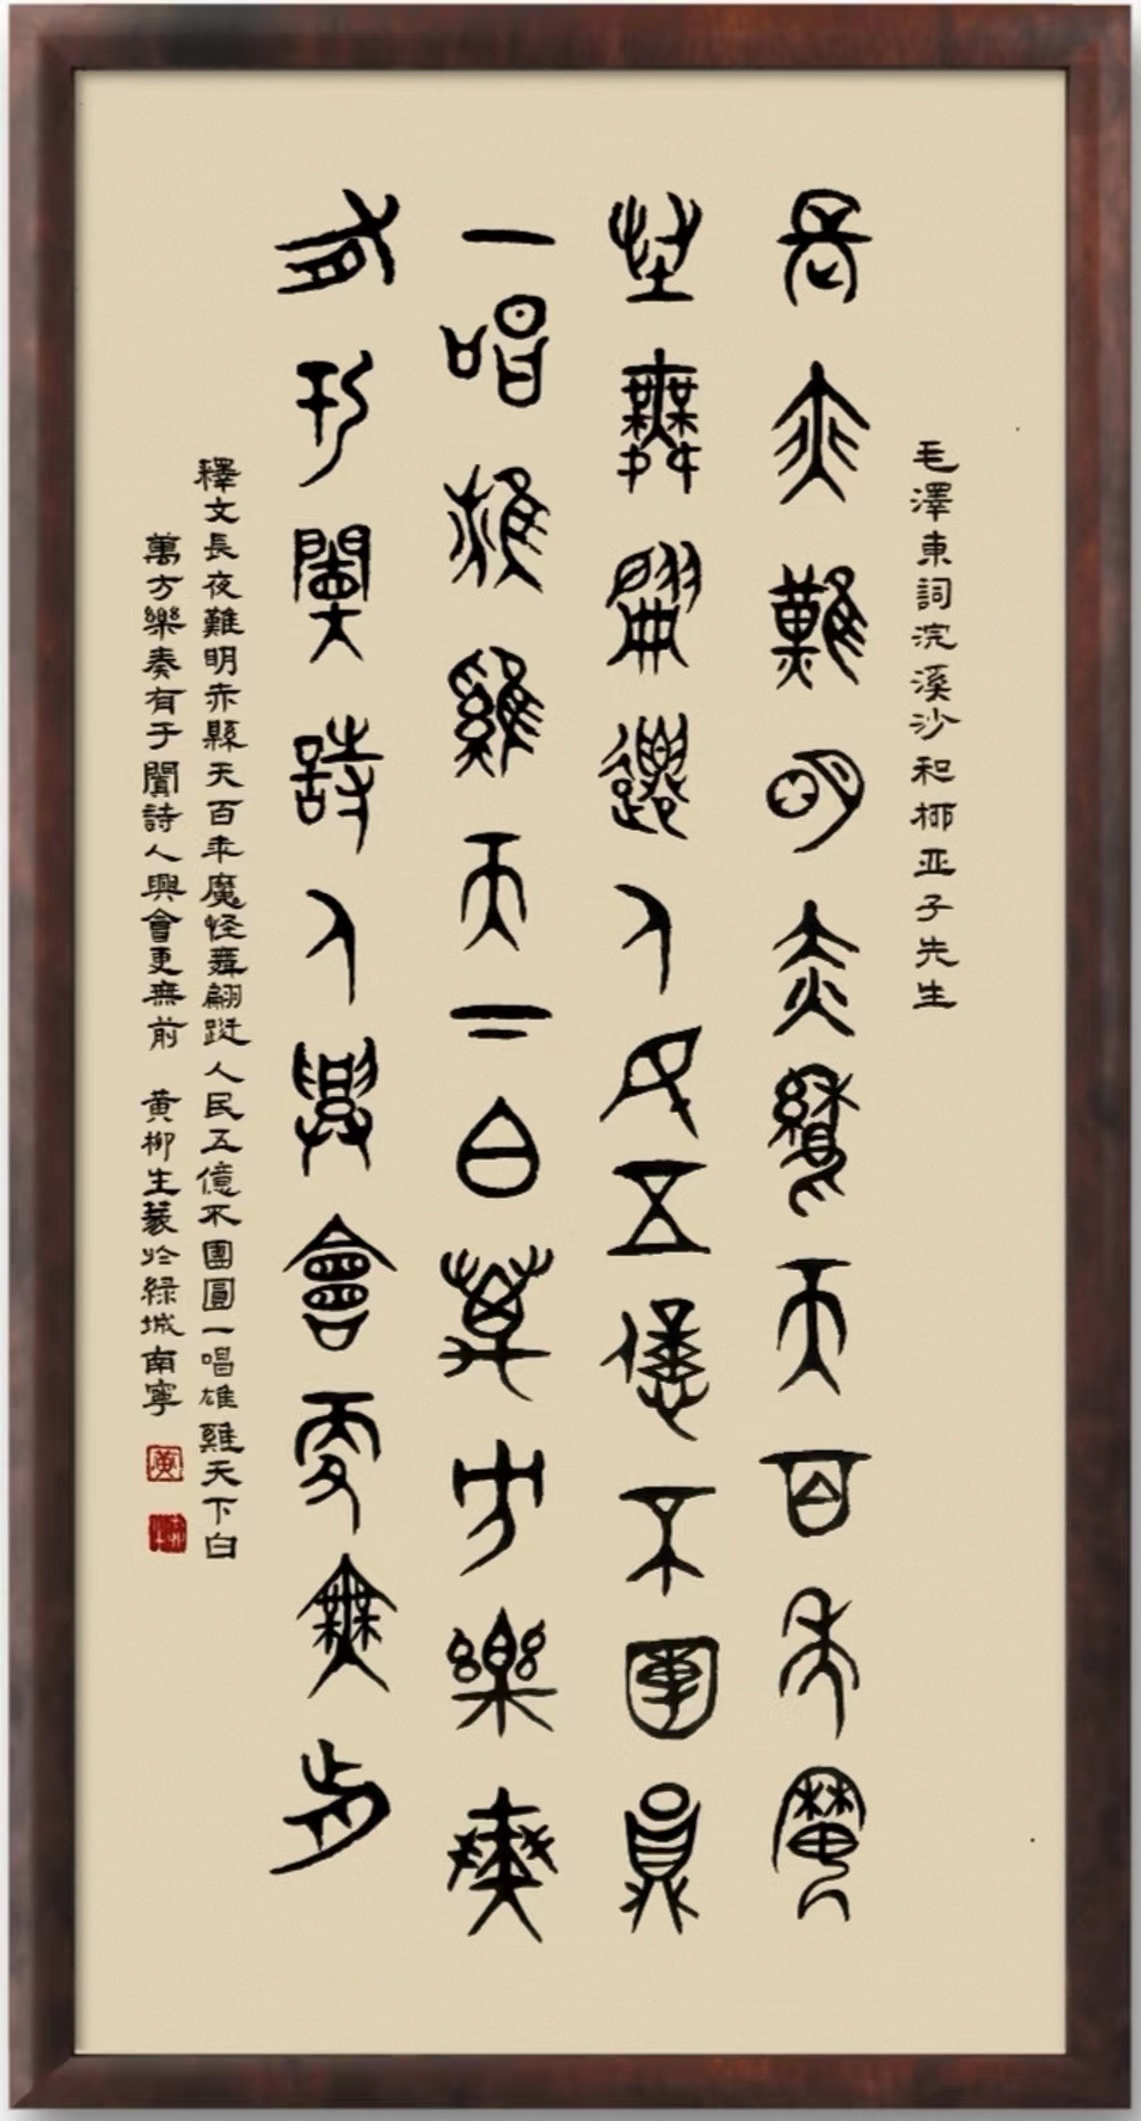 毛澤東詞浣溪沙和柳亚子先生
長夜難明赤縣天百年魔
怪舞翩躚人民五億不團圓
一唱雄雞天下白萬方樂奏
有于闐詩人興會更無前
釋文長夜難明赤縣天百年魔怪舞翩跹人民五億不團圓一唱雄雞天下白
萬方樂奏有于闐詩人興會更無前 黄柳生篆於緑城南寧
黄